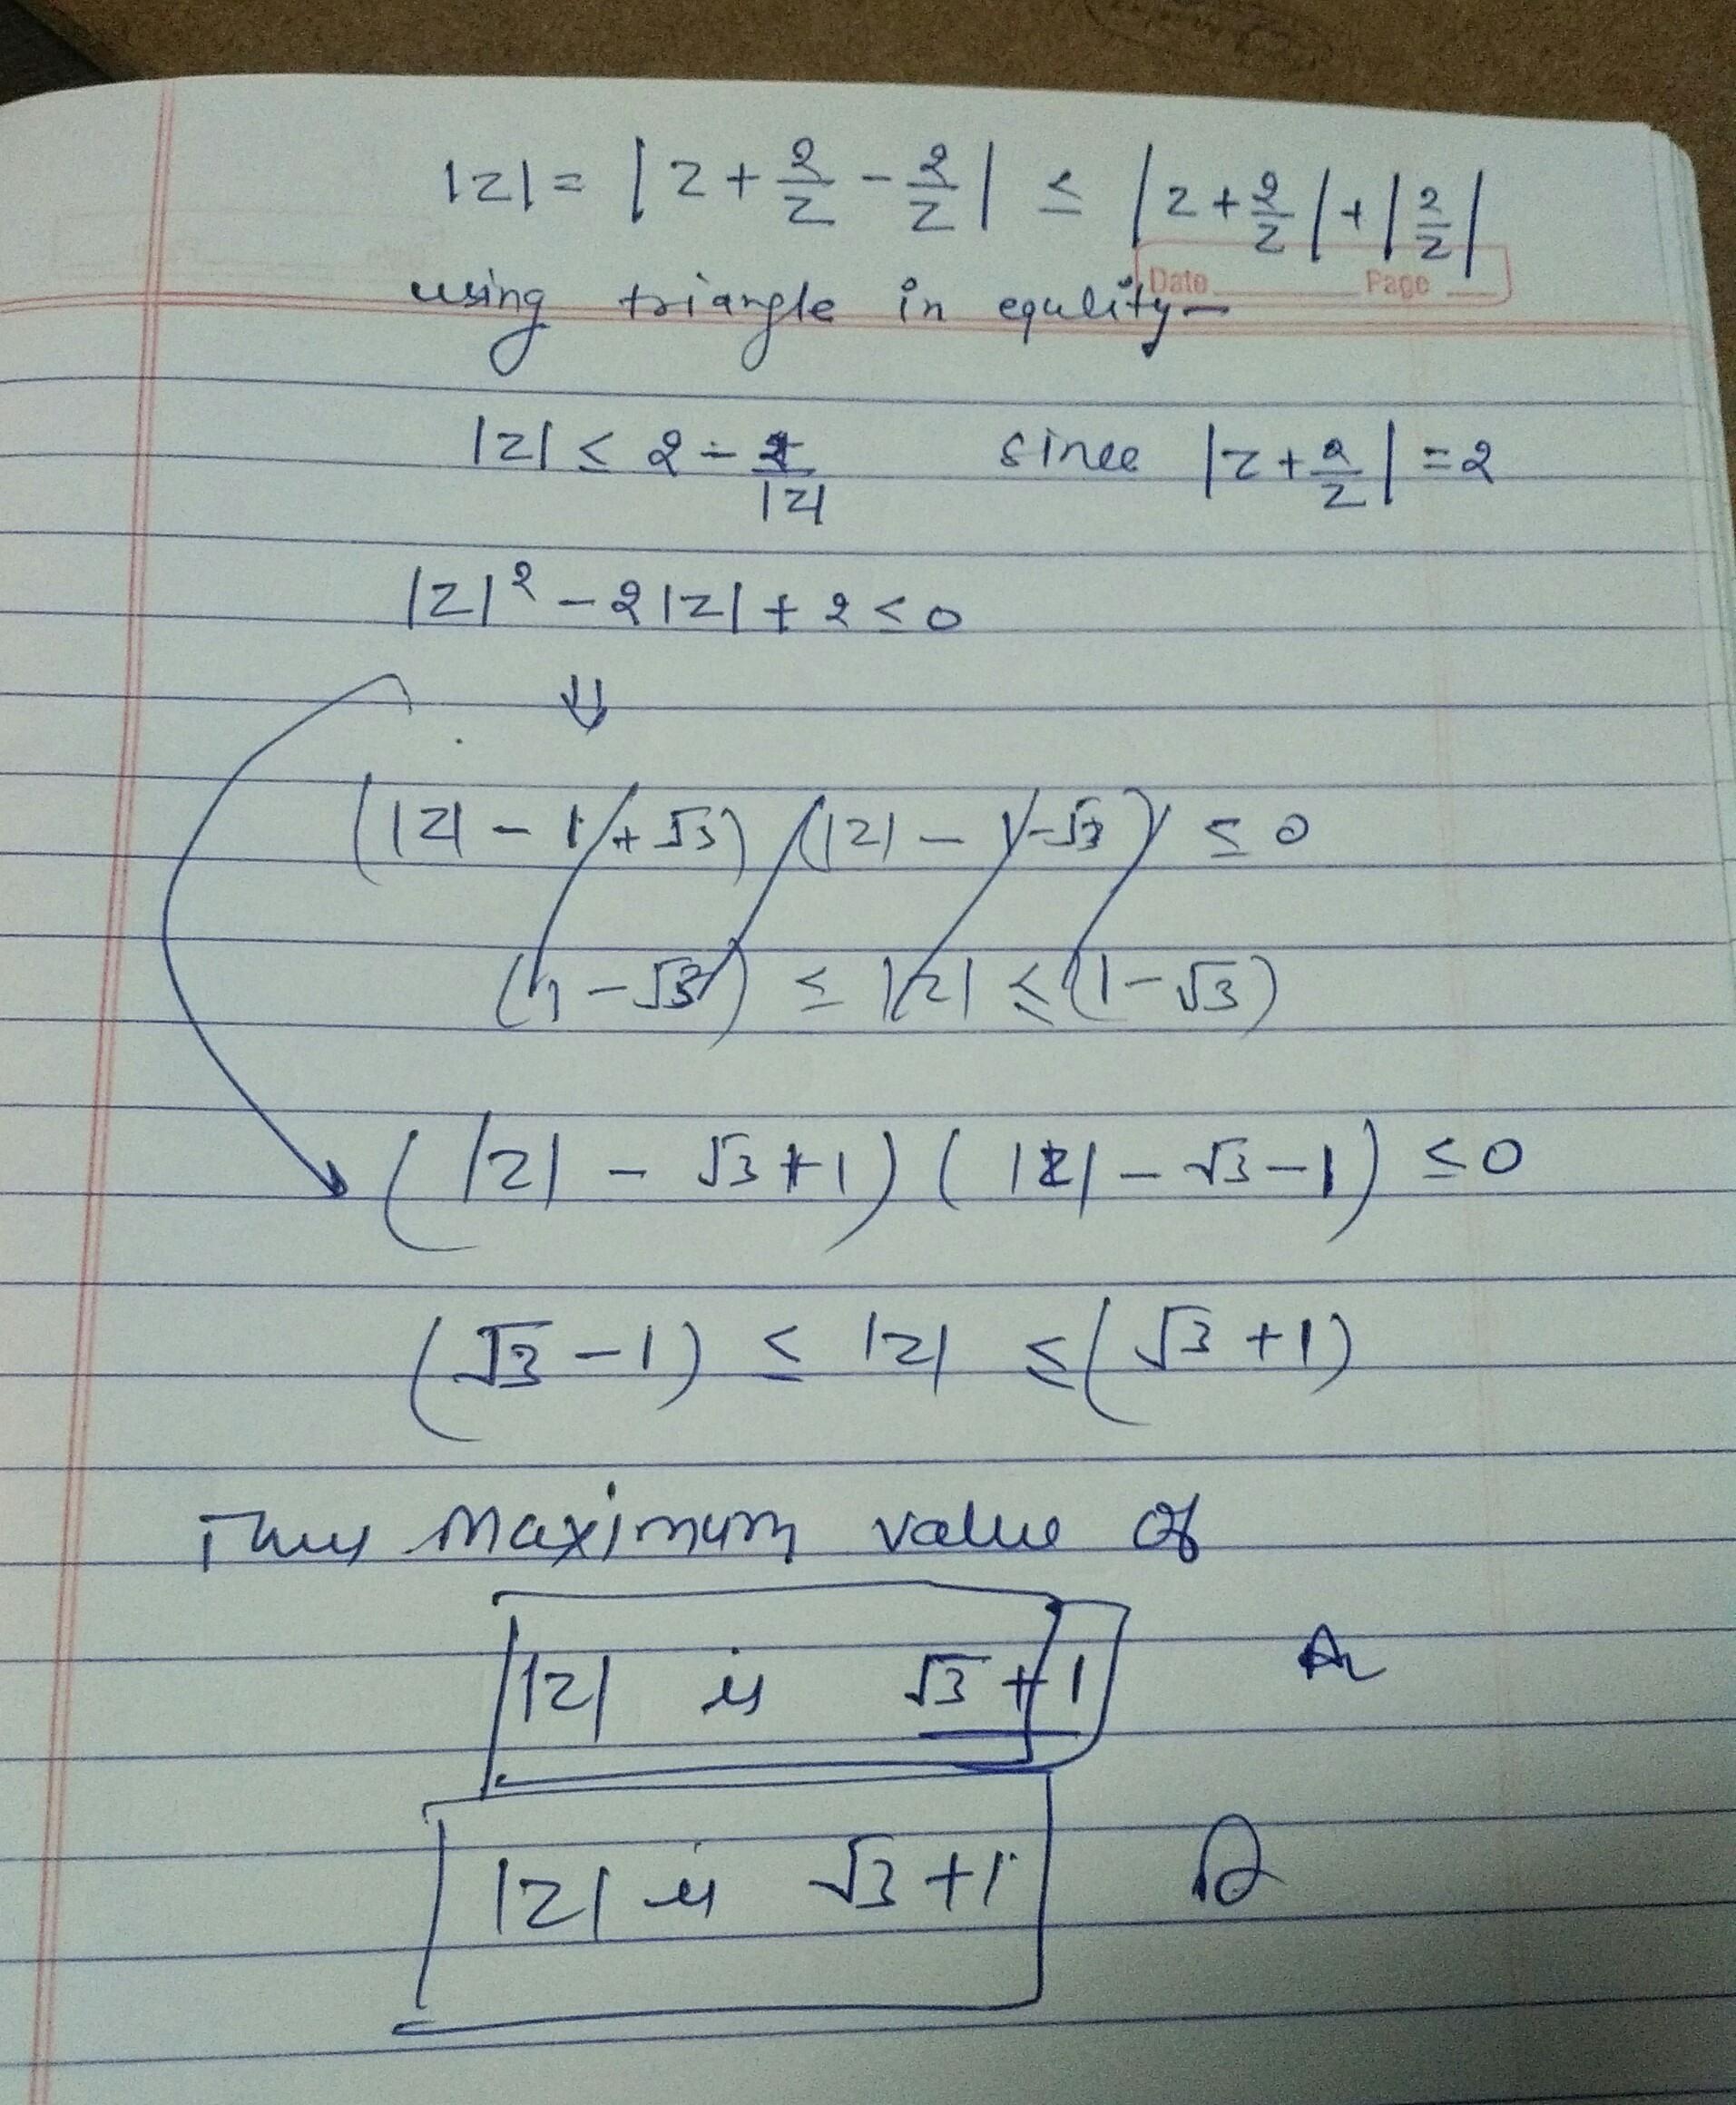 |z| = |z + 2/z - 2/z| ≤ |z + 2/z| + |2/z|
Date Page
using triangle in equlity -
|z| ≤ 2 - 2/|z| since |z + 2/z| = 2
|z|² - 2|z| + 2 ≤ 0
⇓
(|z| - 1 + √3) (|z| - 1 - √3) ≤ 0
(1 - √3) ≤ |z| ≤ (1 - √3)
(|z| - √3 + 1) (|z| - √3 - 1) ≤ 0
(√3 - 1) ≤ |z| ≤ (√3 + 1)
Thus Maximum value of
|z| is √3 + 1
|z| is √3 + 1